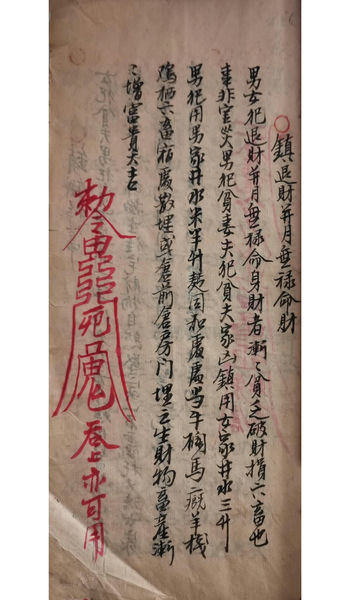 鎮退財并月無祿命財
男女犯退財并月無祿命身財者漸々貧乏破財損六畜也
非官災男犯貧妻夫犯貧夫家凶鎮用女家井水三升
男犯用男家井水米半升麪同和處處与牛欄馬厩羊棧
鷄栖六畜宿處散埋或倉前倉房門埋之生財物畜產漸
々增富貴大吉
勅令
亦可用